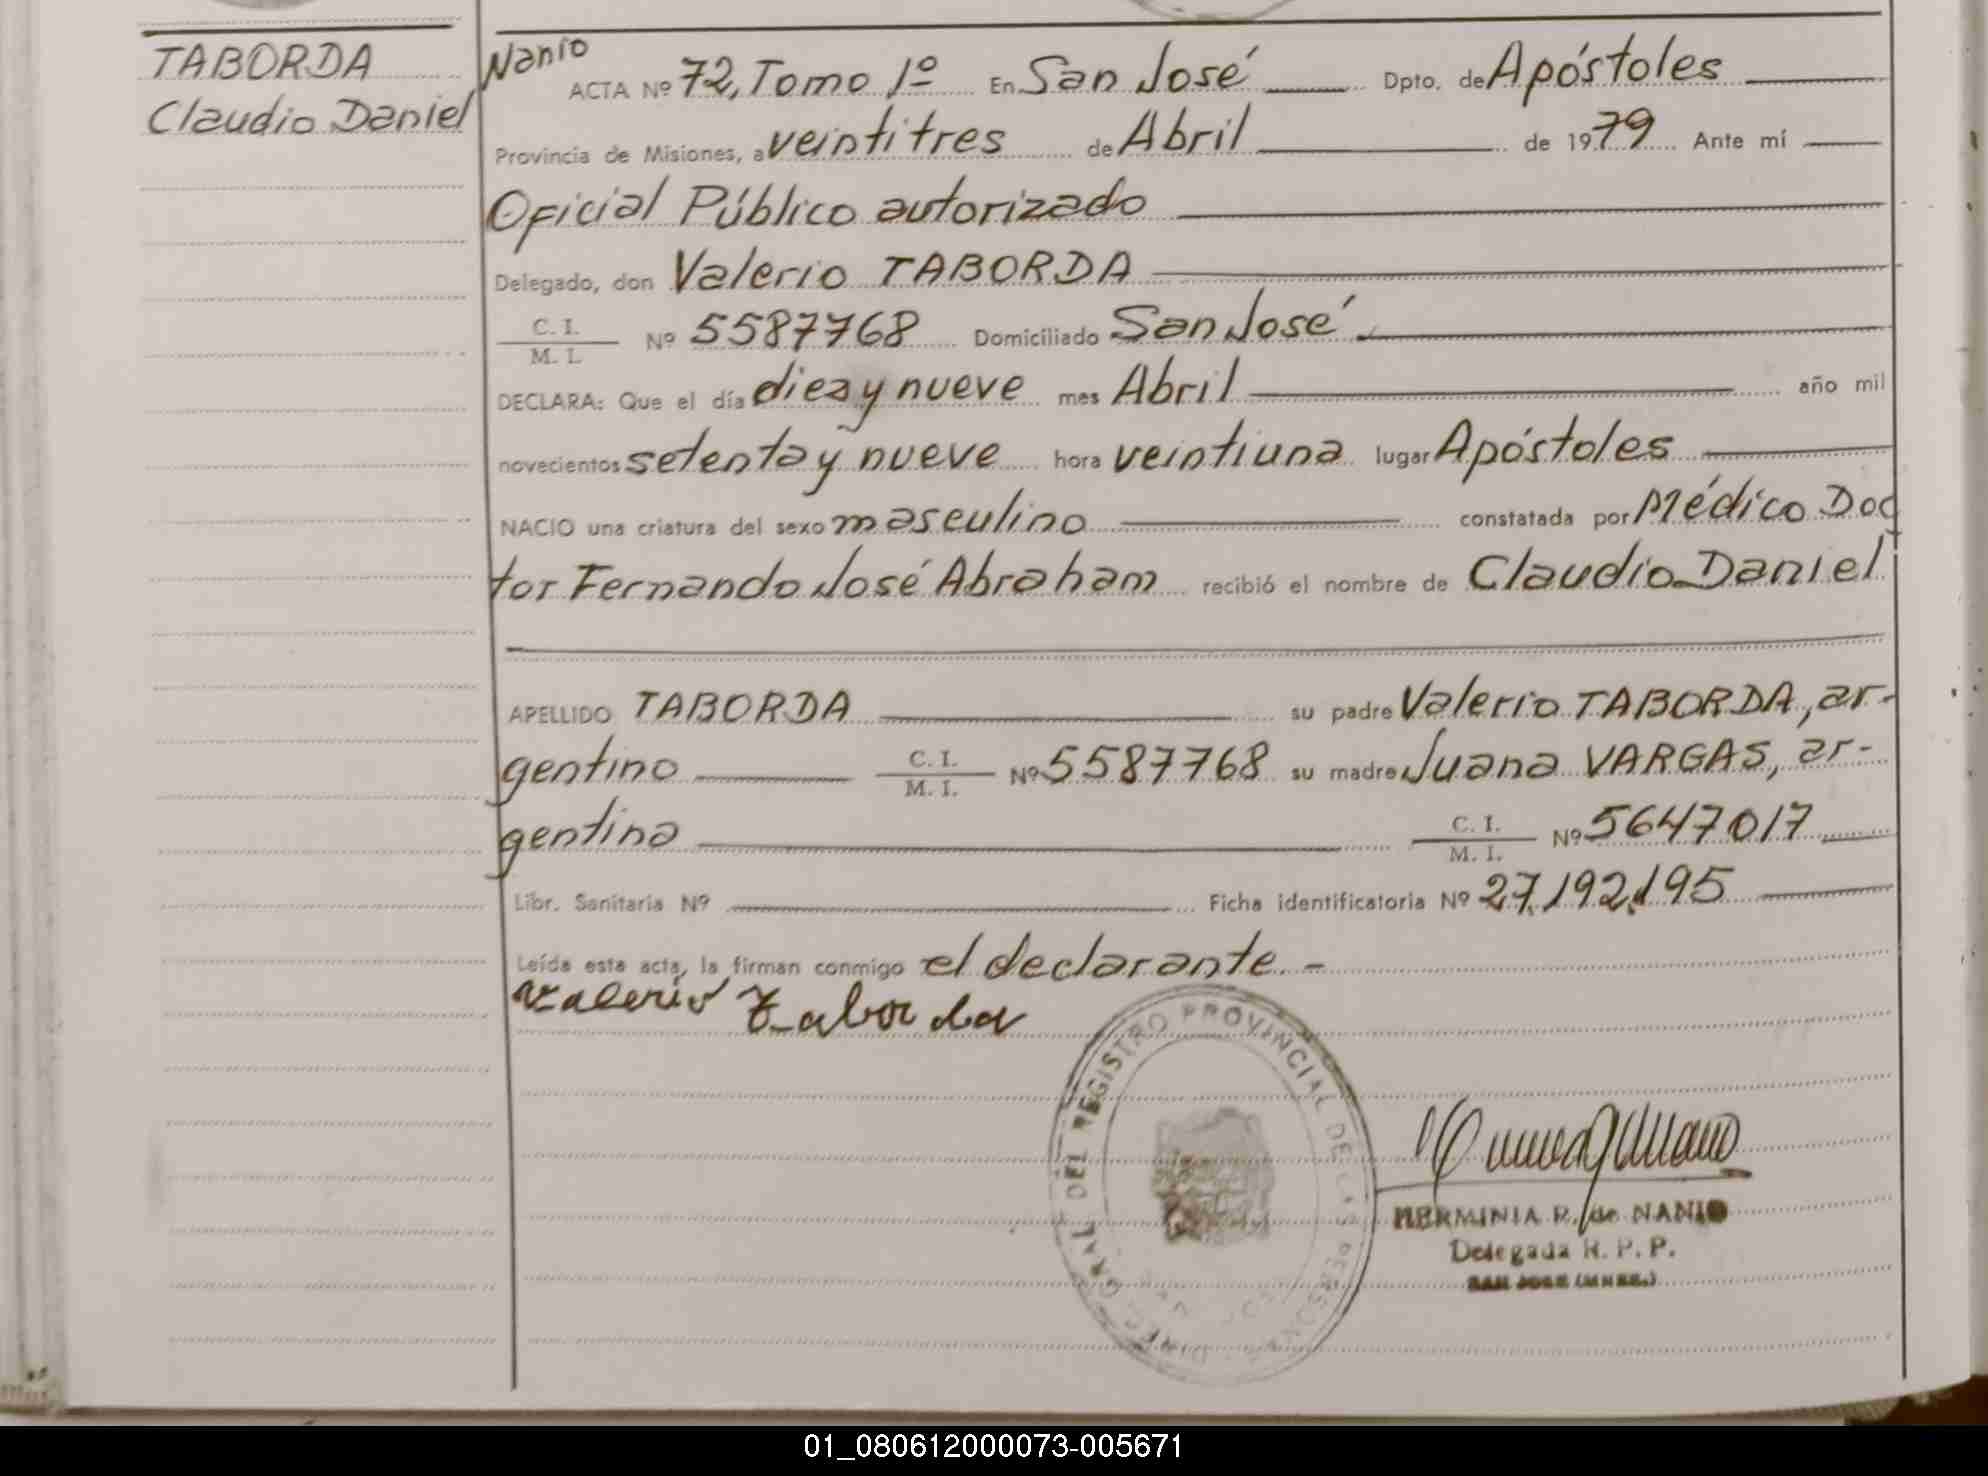 TABORDA
Claudio Daniel
Nanio
ACTA Nº 72, Tomo 1º En San José Dpto. de Apóstoles
Provincia de Misiones, a veintitres de Abril de 1979 Ante mí
Oficial Público autorizado
Delegado, don Valerio TABORDA
C. I.
M. I. Nº 5587768 Domiciliado San José
DECLARA: Que el día diez y nueve mes Abril año mil
novecientos setenta y nueve hora veintiuna lugar Apóstoles
NACIO una criatura del sexo masculino constatada por Médico Doc
tor Fernando José Abraham recibió el nombre de Claudio Daniel
APELLIDO TABORDA su padre Valerio TABORDA, ar-
gentino C. I. M. I. Nº 5587768 su madre Juana VARGAS, ar-
gentina C. I. M. I. Nº 5647017
Libr. Sanitaria Nº Ficha identificatoria Nº 27,192,195
Leída esta acta, la firman conmigo el declarante.-
Valerio Taborda
DIREC. GRAL. DEL REGISTRO PROVINCIAL DE LAS PERSONAS
HERMINIA R. de NANIO
Delegada R. P. P.
SAN JOSE (MNES.)
01_080612000073-005671